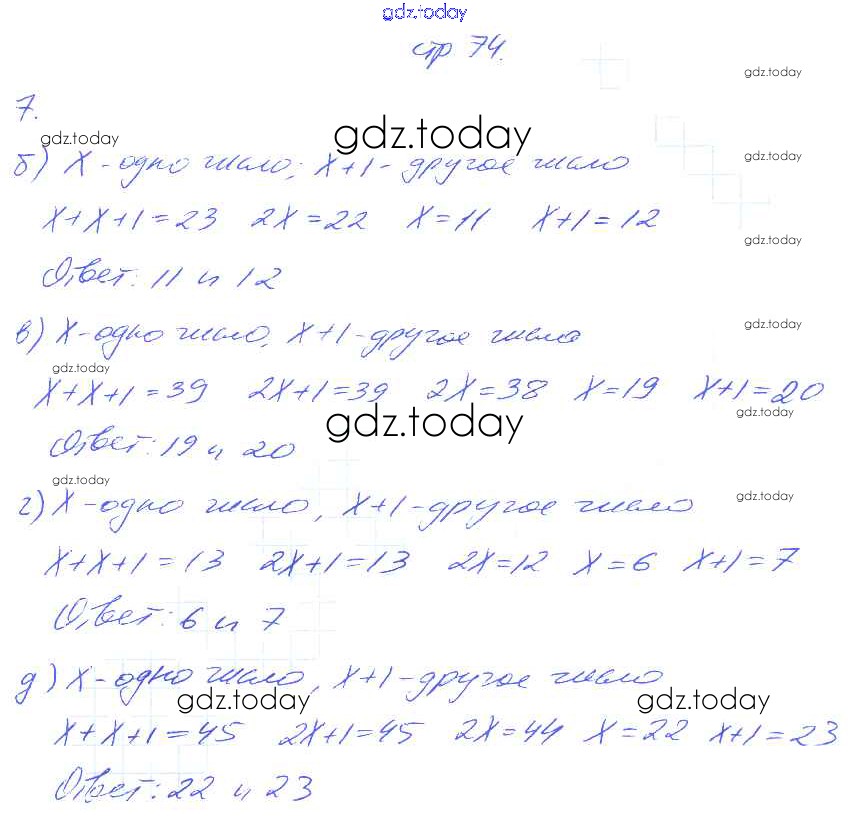 gdz.today
стр 74.
gdz.today
7.
gdz.today
gdz.today
gdz.today
б) x - одно число; x+1 - другое число
x+x+1=23 2x=22 x=11 x+1=12
gdz.today
Ответ: 11 и 12
gdz.today
в) x - одно число, x+1 - другое число
gdz.today
x+x+1=39 2x+1=39 2x=38 x=19 x+1=20
gdz.today
gdz.today
Ответ: 19 и 20
gdz.today
gdz.today
г) x - одно число, x+1 - другое число
x+x+1=13 2x+1=13 2x=12 x=6 x+1=7
Ответ: 6 и 7
д) x - одно число, x+1 - другое число
gdz.today
gdz.today
x+x+1=45 2x+1=45 2x=44 x=22 x+1=23
Ответ: 22 и 23